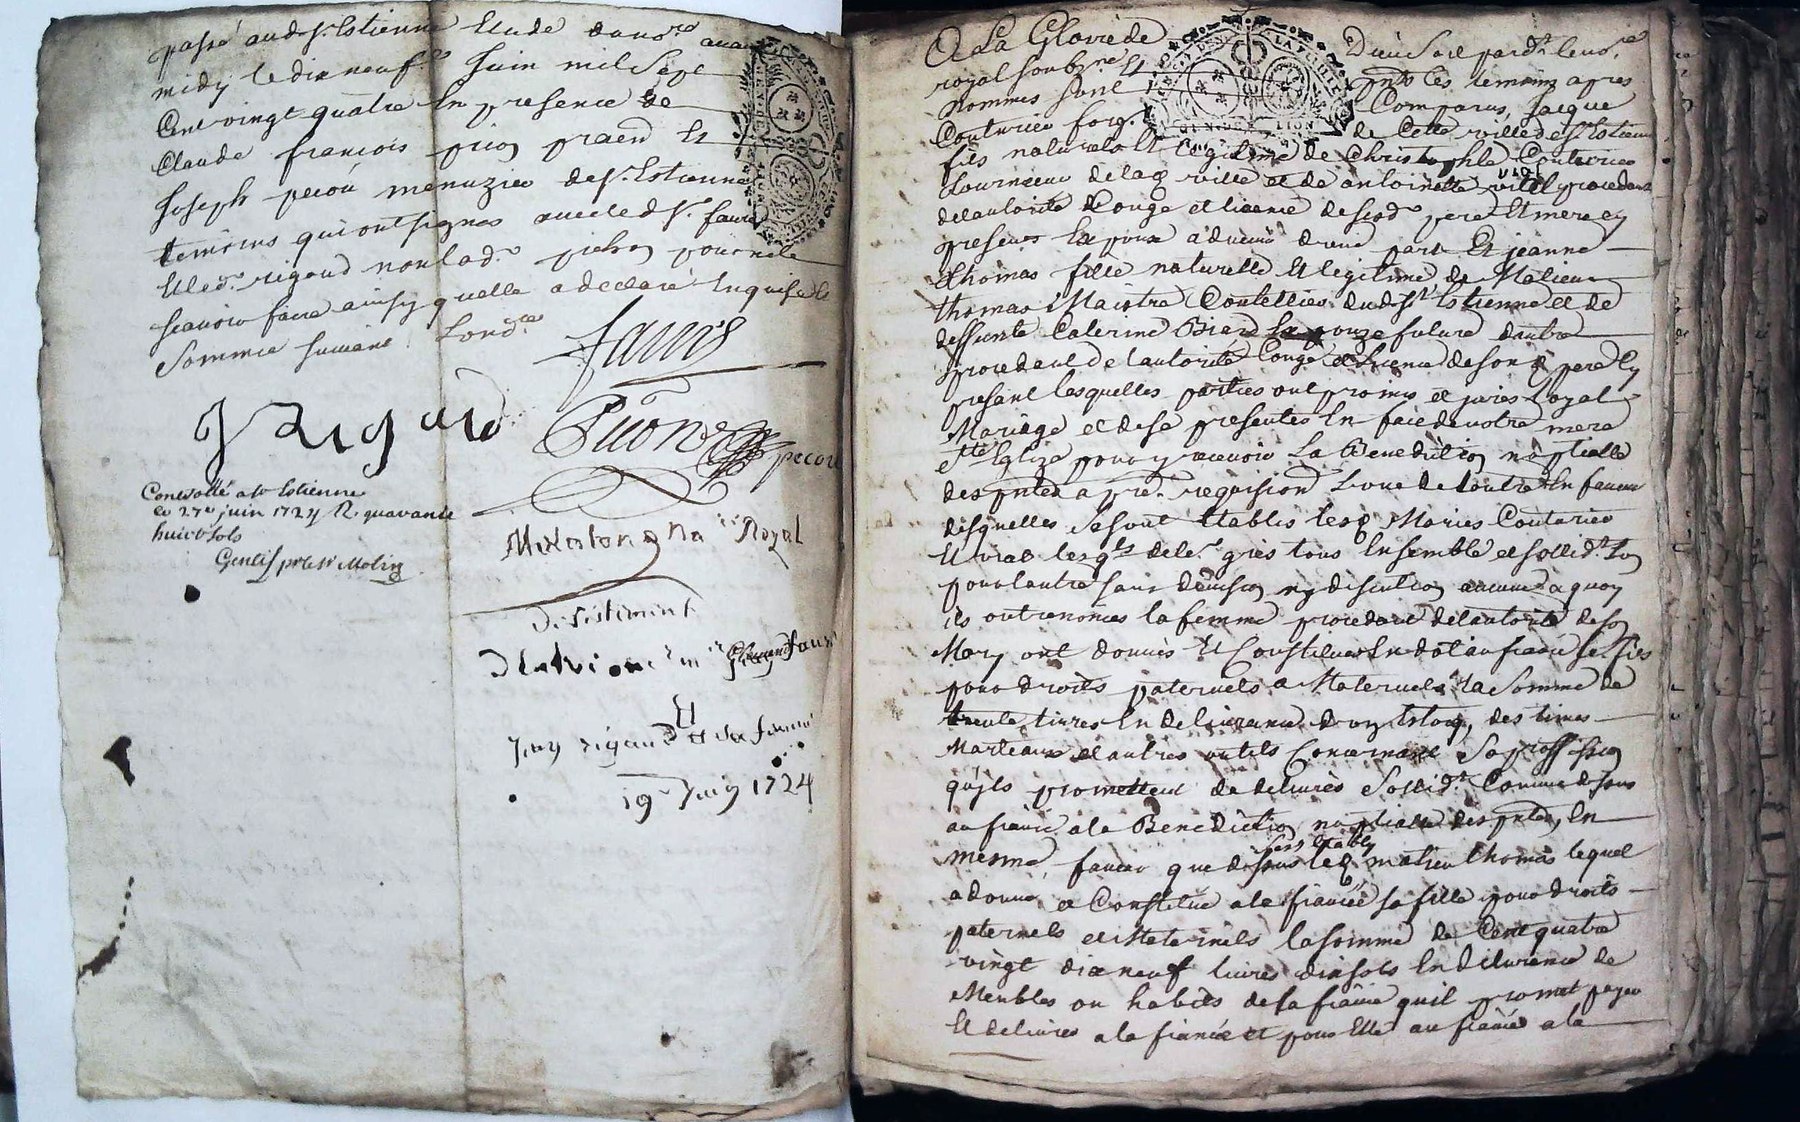 passé aud. St. Estienne Etude dans. re avant
midy le dix neuf e Juin mil Sept
Cent vingt quatre En presence de
Claude francois picon praen Et
Joseph pecou menuzier de St. Estienne
temoins qui ont signes avec led Sr. faure
et led. rigaud non lad. pichon pour ne le
scavoir faire ainsy quelle a declaré Enquise le
Sommée suivant
Faure
J Rigaud
Picon
pecou
Controllé a St Estienne
ce 27e juin 1724 R. quarante
huit sols
Gentif pr le Sr Molin
No re Royal
Desistement
faure
Et
Jean rigaud Et sa femme
19e Juin 1724
A La Gloire de Dieu Soit
royal soubzné Et les temoins apres
nommes sont Comparus, Jacque
Couturier forg. de Cette ville de St. Estienne
fils naturel et legitime de Christophle Couturier
fourniceur de lad ville et de antoinette vial procedant
de lautorité Congé et licence de sesd. pere Et mere cy
presents Epoux advenir d'une part Et jeanne
thomas fille naturelle Et legitime de Matieu
thomas Maistre Coutellier dud. St Estienne et de
deffunte Caterine Biard Epouze future d'autre
procedant de lautorité Congé et licence de son d pere Cy
present lesquelles parties ont promis et jurés Loyal
Mariage et de se presenter En face de notre mere
Ste Eglize pour y recevoir La Benediction nuptialle
des pntes a pre. requision Lune de Lautre En faveur
desquelles Se sont Etablis lesd Maries Couturier
Et vial lesqls de le. grés tous Ensemble et sollid. t Lun
pour lautre sans division ny discution aucune a quoy
ils ont renoncés la femme procedant de lautorité de son
Mary ont donnés Et Constitués En dot au fiancé le. fils
pour droits paternels et Maternels la Somme de
trente livres En delivrance d'un Estoq, des limes
Marteaux et autres outils Concernant Sa proffession
qu'ils promettent de delivrer sollid. t Comme dessus
au fiancé a la Benediction nuptialle des pntes, En
mesme faveur que dessus sest Etably led matieu thomas lequel
a donné et Constitué a la fiancée sa fille pour droits
paternels et Maternels la somme de Cent quatre
vingt dix neuf livres dix sols En delivrance de
Meubles ou habits de la fiancée quil promet payer
Et delivrer a la fiancée et pour Elle au fiancé a la